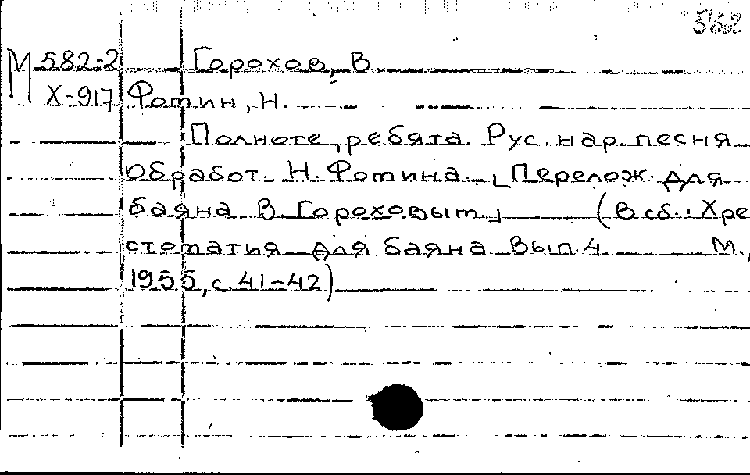 562
М 582-2 Горохов, В.
Х-917 Фотин, Н.
Полноте, ребята. Рус. нар. песня
Обработ. Н. Фотина. [Перелож. для
баяна В. Гороховым] (В сб.: Хре
стоматия для баяна Вып. 4 М.,
1955, с 41-42)